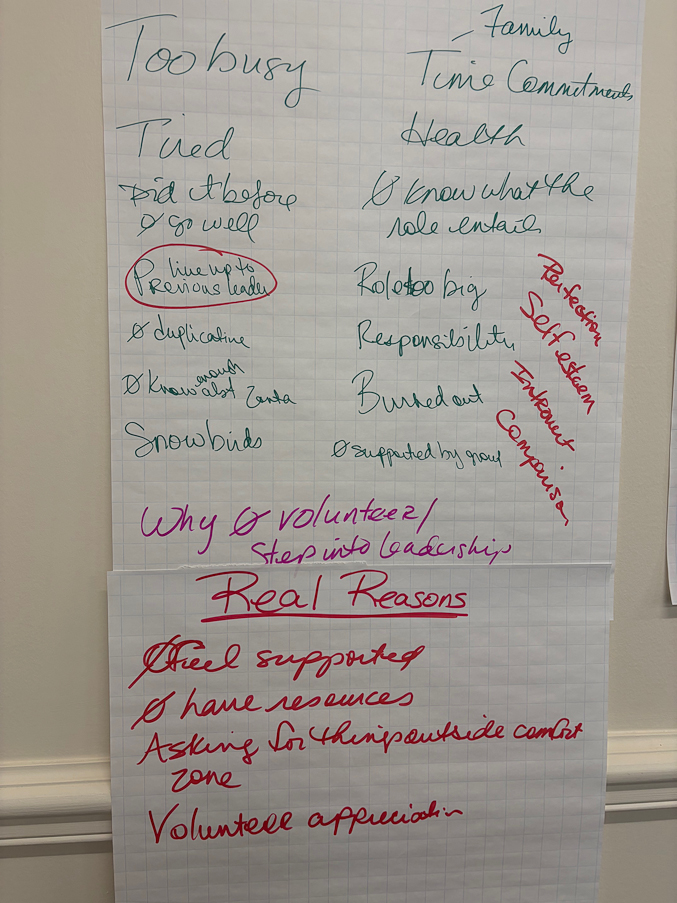 Too busy
- Family
Time Commitments
Tired
Health
Did it before
Ø go well
Ø know what the
role entails
live up to
Previous leader
Role too big
Ø duplicative
Responsibility
enough
Ø Know abt Zonta
Burned out
Snowbirds
Ø supported by group
Perfection
Self esteem
Introvert
Comparison
Why Ø volunteer/
Step into leadership
Real Reasons
Ø Feel supported
Ø have resources
Asking for things outside comfort
zone
Volunteer appreciation